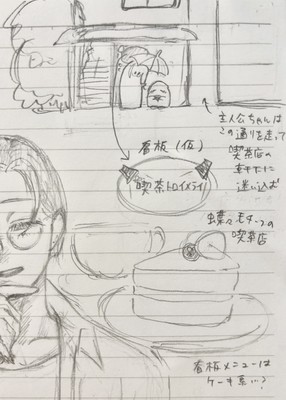 主人公ちゃんは
この通りを走って
喫茶店の
軒下に
迷い込む
看板(仮)
喫茶トロイメライ
蝶々モチーフの
喫茶店
看板メニューは
ケーキ系…?